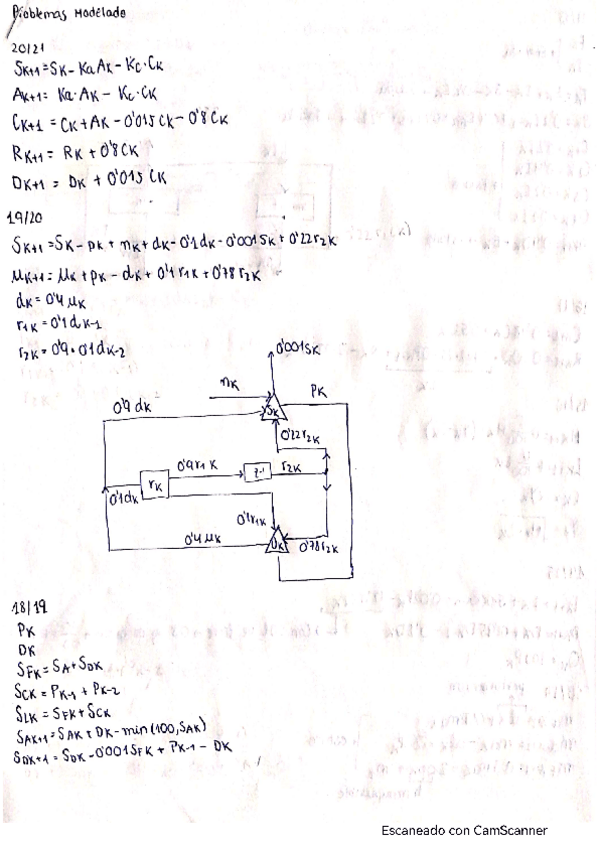 Problemas Modelado
20/21
SK+1=SK-KaAK-KC·CK
AK+1= Ka·AK - KC·CK
CK+1 = CK+AK-0'015CK-0'8CK
RK+1= RK+0'8CK
DK+1 = DK + 0'015 CK
19/20
SK+1=SK-PK+nK+dK-0'1dK-0'001SK+0'22r2K
MK+1=MK+PK-dK+0'1r1K+0'78r2K
dK=0'4MK
r1K=0'1dK-1
r2K=0'9·0'1dK-2
0'001SK
nK
PK
0'9dK
SK
0'22r2K
0'9r1K
z-1
r2K
rK
0'1dK
0'1r1K
0'4MK
DK
0'78r2K
18/19
PK
DK
SFK=SA+SDK
SCK=PK-1+PK-2
SLK=SFK+SCK
SAK+1=SAK+DK-min(100,SAK)
SDK+1=SDK-0'001SFK+PK-1-DK
Escaneado con CamScanner